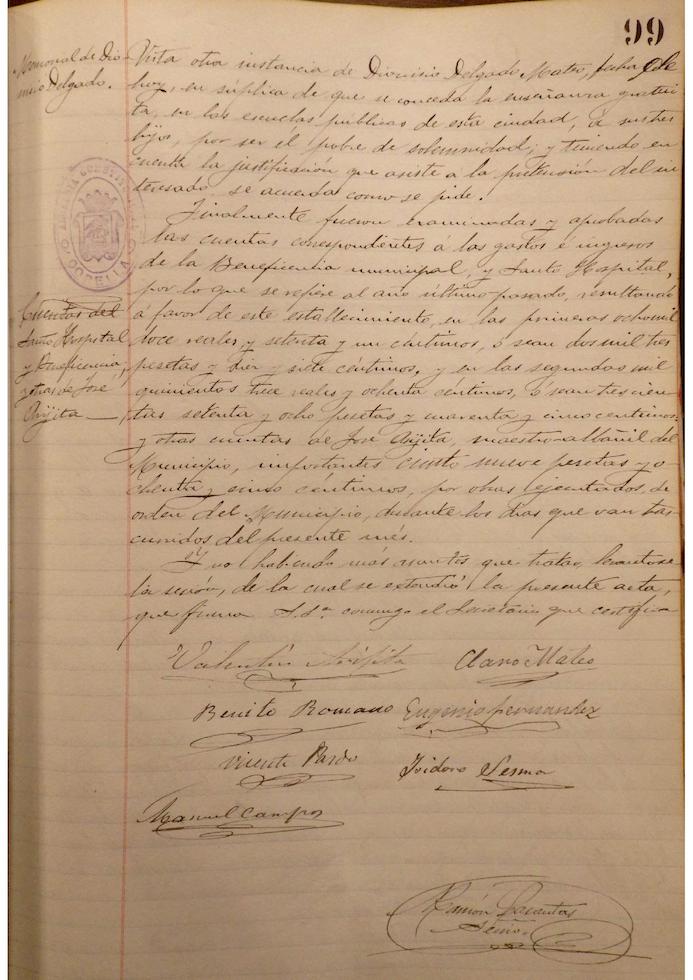 99
Memorial de Dio-
nisio Delgado.
Vista otra instancia de Dionisio Delgado Mateo, fecha de
hoy, en súplica de que se conceda la enseñanza gratui-
ta, en las escuelas públicas de esta ciudad, á sus tres
hijos, por ser el pobre de solemnidad; y teniendo en
cuenta la justificación que asiste a la pretensión del in-
teresado se acuerda como se pide.
Finalmente fueron examinadas y aprobadas
las cuentas correspondientes á los gastos é ingresos
de la Beneficencia municipal, y Santo Hospital,
por lo que se refiere al año último pasado, resultando
á favor de este establecimiento, en las primeras ocho mil
doce reales y setenta y un céntimos, ó sean dos mil tres
pesetas y diez y siete céntimos, y en las segundas mil
quinientos trece reales y ochenta céntimos, ó sean trescien-
tas setenta y ocho pesetas y cuarenta y cinco centimos.
y otras cuentas de José Arijita, maestro albañil del
Municipio, importantes ciento nueve pesetas y o-
chenta y cinco céntimos, por obras ejecutadas, de
orden del Municipio, durante los dias que van tras-
curridos del presente més.
Y no habiendo más asuntos que tratar, levantose
la sesión, de la cual se extendió la presente acta,
que firma S.Sª. conmigo el Secretario que certifico
Cuentas del
Santo Hospital
y Beneficencia,
y otras de José
Arijita
CORELLA
Valentín Arijita
Claro Mateo
Benito Romano
Eugenio Fernandez
Vicente Pardo
Isidoro Sesma
Manuel Campos
Ramón